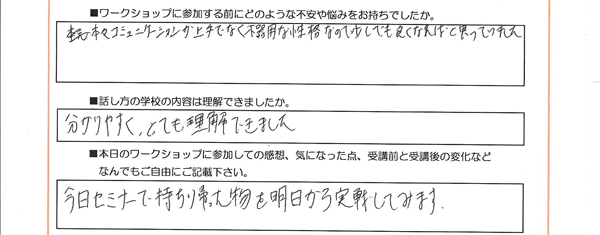 ■ワークショップに参加する前にどのような不安や悩みをお持ちでしたか。
元々コミュニケーションが上手でなく不器用な性格なので少しでも良くなればと思っていました
■話し方の学校の内容は理解できましたか。
分かりやすく、とても理解できました
■本日のワークショップに参加しての感想、気になった点、受講前と受講後の変化など
なんでもご自由にご記載下さい。
今日セミナーで持ち帰った物を明日から実戦してみます.